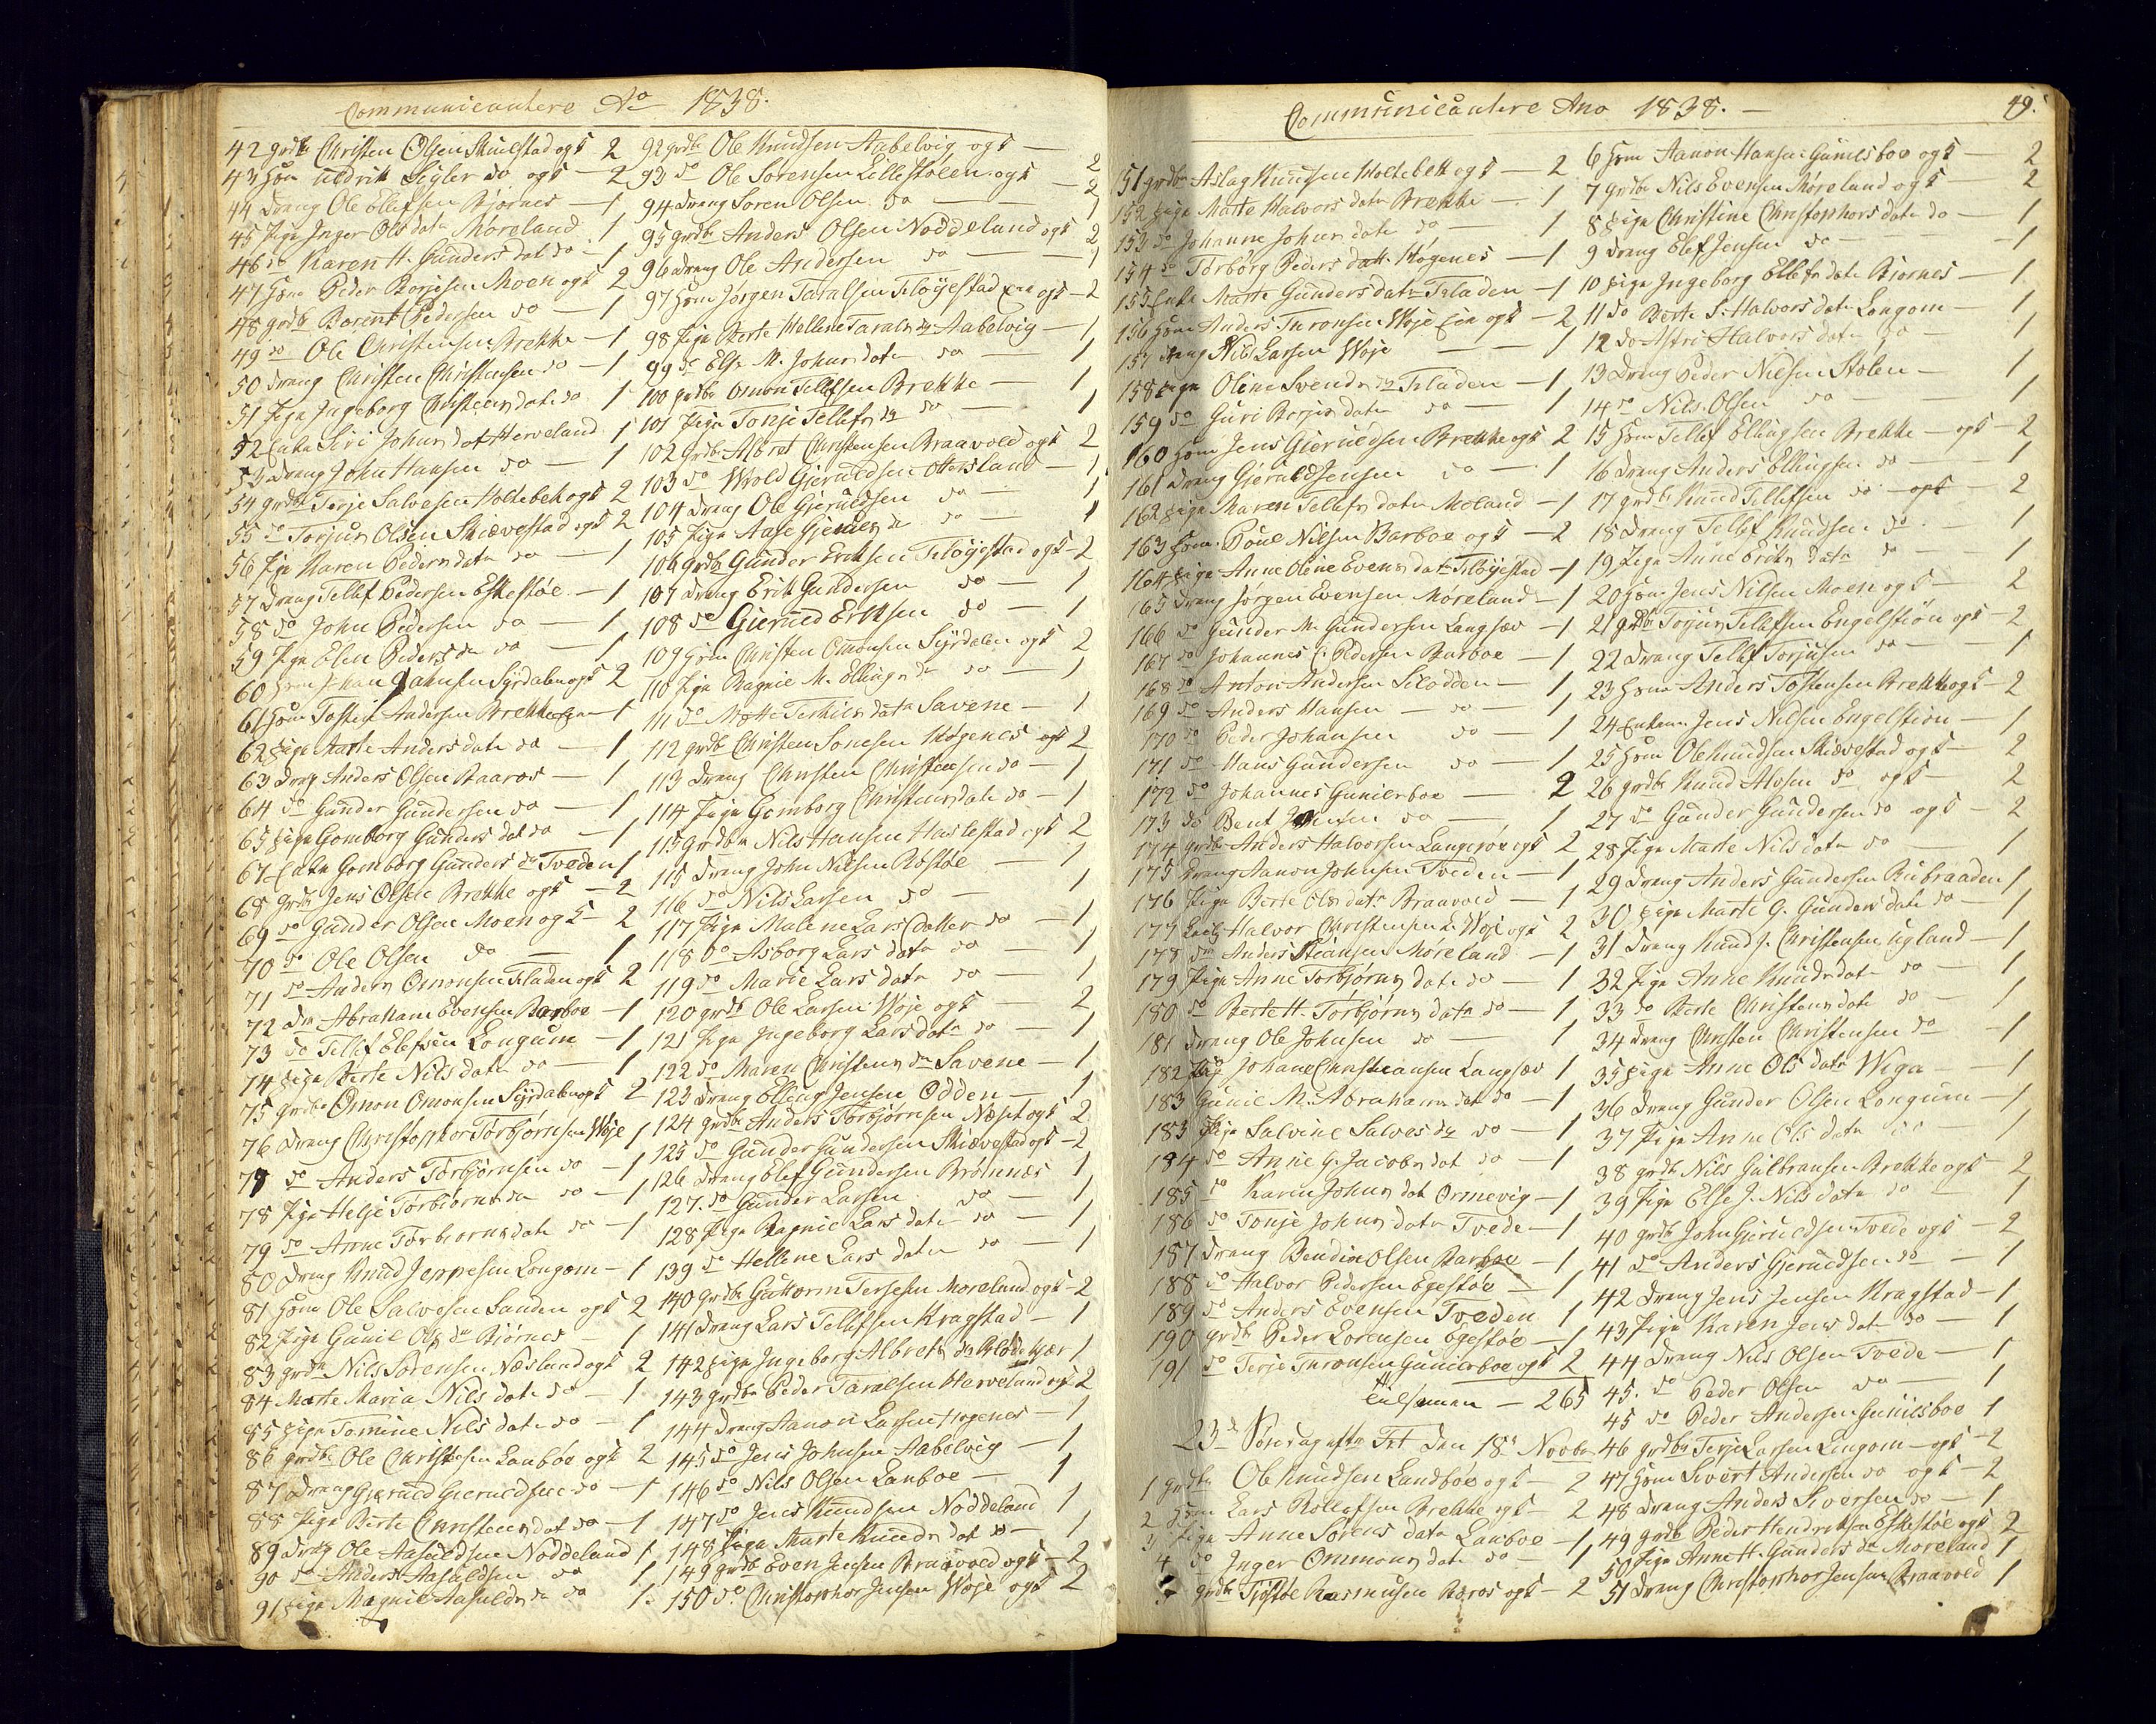 Communicantere Ao 1838.
42 grdbr Christen Olsen Skuelstad ogk 2
43 Hsm Uldrik Sigler do ogk 2
44 Dreng Ole Ellefsen Bjørnes — 1
45 Pige Inger Ols datr Møreland 1
46 do Karen H. Gunders dat do — 1
47 Hsm Peder Børjesen Moen ogk 2
48 grdbr Borent Pedersen do — 1
49 do Ole Christensen Brekke — 1
50 Dreng Christen Christensen do — 1
51 Pige Ingeborg Christens datr do 1
52 Enke Siri Johns dat Herveland 1
53 Dreng John Hansen do — 1
54 grdbr Terje Salvesen Holtebek ogk 2
55 do Torjus Olsen Skiævestad ogk 2
56 Pige Karen Peders datr do — 1
57 Dreng Tellef Pedersen Eskestøe — 1
58 do John Pedersen do — 1
59 Pige Elen Peders dr do 1
60 Hsm Johan Johnsen Syrdalen ogk 2
61 Hsm Tosten Andersen Brekke — 1
62 Pige Marte Anders datr do — 1
63 Dreng Anders Olsen Baaros — 1
64 do Gunder Gundersen do — 1
65 Pige Gomborg Gunders dat do — 1
67 Enke Gomborg Gunders dr Tveden 1
68 grdbr Jens Olsen Brekke ogk — 2
69 do Gunder Olsen Moen ogk — 2
70 do Ole Olsen do — 1
71 do Anders Omonsen Fladen ogk 2
72 Dr Abraham Evensen Barboe — 1
73 do Tellef Elefsen Longum — 1
74 Pige Berte Nils datr do — 1
75 grdbr Omon Omonsen Syrdalen ogk 2
76 Dreng Christopher Torbjørnsen Woje 1
77 do Anders Torbjørnsen do — 1
78 Pige Helje Torbiørns dr do — 1
79 do Anne Torbiørns datr do — 1
80 Dreng Knud Jeppesen Longom — 1
81 Hsm Ole Salvesen Sanden ogk 2
82 Pige Gunil Ols dr Bjørnes — 1
83 grdbr Nils Sørensen Næsland ogk 2
84 Marte Maria Nils datr do — 1
85 Pige Tomine Nils datr do — 1
86 grdbr Ole Christensen Lanbóe ogk 2
87 Dreng Gjeruld Gieruldsen do — 1
88 Pige Berte Christens dat do — 1
89 Dreng Ole Aasuldsen Noddeland 1
90 do Anders Aasuldsen do 1
91 Pige Magnil Aasulds dr do 1
92 grdbr Ole Knudsen Aabelvig ogk — 2
93 do Ole Sørensen Lillestølen ogk — 2
94 Dreng Søren Olsen do — 1
95 grdbr Anders Olsen Noddeland ogk 2
96 Dreng Ole Andersen do — 1
97 Hsm Jørgen Taralsen Fløjestad ogk — 2
98 Pige Berte Hellene Tarals dr Aabelvig — 1
99 do Else M. Johns datr do — 1
100 grdbr Omon Tellefsen Brekke — 1
101 Pige Tonje Tellefs dr do — 1
102 grdbr Albret Christensen Braavold ogk 2
103 do Wrold Gjeruldsen Ottersland — 1
104 Dreng Ole Gjeruldsen do — 1
105 Pige Aase Gjerulds dr do — 1
106 grdbr Gunder Eriksen Fløjestad ogk — 2
107 Dreng Erik Gundersen do — 1
108 do Gieruld Eriksen do — 1
109 Hsm Christen Omonsen Syrdalen ogk 2
110 Pige Ragnil M. Ellings dr do — 1
111 do Mette Terkils datr Savene — 1
112 grdbr Christen Sonesen Høgenes ogk 2
113 Dreng Christen Christensen do — 1
114 Pige Gomborg Christens datr do — 1
115 grdbr Nils Hansen Haslestad ogk 2
115 Dreng John Nilsen Røstøe — 1
116 do Nils Larsen do — 1
117 Pige Malene Lars Datter do — 1
118 do Asborg Lars datr do — 1
119 do Marie Lars datr do — 1
120 grdbr Ole Larsen Woje ogk — 2
121 Pige Ingeborg Lars datr do — 1
122 do Maren Christens dr Savene — 1
123 Dreng Elling Jensen Odden — 1
124 grdbr Anders Torbjørnsen Næset ogk 2
125 do Gunder Gundersen Skiævestad ogk — 2
126 Dreng Elef Gundersen Brønnæs 1
127. do Gunder Larsen do — 1
128 Pige Ragnil Lars datr do — 1
139 do Hellene Lars datr do — 1
140 grdbr Guttorm Terjesen Moreland ogk — 2
141 Dreng Lars Tellefsen Kragstad — 1
142 Pige Ingeborg Albrets dr Glødekjær 1
143 grdbr Peder Taralsen Harveland ogk 2
144 Dreng Aanon Larsen Høgenes — 1
145 do Jens Johnsen Aabelvig — 1
146 do Nils Olsen Lanboe — 1
147 do Jens Knudsen Noddeland 1
148 Pige Marte Knuds dat do — 1
149 grdbr Even Jensen Braavold ogk — 2
150 do Christopher Jensen Woje ogk 2
Communicantere Ano 1838. — 49.
151 grdbr Aslag Knudsen Holtebek ogk — 2
152 Pige Marte Halvors datr Brekke — 1
153 do Johanne Johns datr do — 1
154 do Torborg Peders datt. Høgenes — 1
155 Enke Marte Gunders datr Fladen — 1
156 Hsm Anders Tnronsen Woje ogk — 2
157 Dreng Nils Larsen Woje — 1
158 Pige Oline Svends dr Fladen — 1
159 do Guri Børjes datr do — 1
160 Hsm Jens Gieruldsen Brekke ogk 2
161 Dreng Gieruld Jensen do — 1
162 Pige Maren Tellefs datr Moland — 1
163 Hsm. Poul Nilsen Barboe ogk — 2
164 Pige Anne Oline Evens datr Fløjestad — 1
165 Dreng Jørgen Evensen Moreland — 1
166 do Gunder M. Gundersen Langsæv — 1
167 do Johannes C. Pedersen Barboe — 1
168 do Anton Andersen Slodden — 1
169 do Anders Hansen — do — 1
170 do Peder Johansen do — 1
171 do Hans Gundersen do — 1
172 do Johannes Gunilsboe — 2
173 do Bent Jensen do — 1
174 grdbr Anders Halvorsen Langerøe ogk 2
175 Dreng Aanon Johnsen Tveden — 1
176 Pige Berte Ols datr Braavold — 1
177 Halvor Christensen L. Woje ogk 2
178 Anders Steansen Møreland — 1
179 Pige Anne Torbjørns datr do — 1
180 do Berte H. Torbjørns datr do — 1
181 Dreng Ole Johnsen do — 1
182 Johan Christiansen Langsæv 1
183 Gunil M. Abrahams dat do — 1
183 Pige Salvine Salves dr do — 1
184 do Anne G. Jacobs dat do — 1
185 do Karen Johns dat Ormevig — 1
186 do Tonje Johns datr Tvede — 1
187 Dreng Bendix Olsen Barboe — 1
188 do Halvor Pedersen Egestøe — 1
189 do Anders Evensen Tveden 1
190 grdbr Peder Lorensen Egestøe — 1
191 do Terje Tnronsen Gunilsboe ogk 2
tilsamen — 265
23de Søndag eftr Trt Den 18de Novbr
1 grdbr Ole Knudsen Landbøe ogk — 2
2 Hsm Lars Rollefsen Brekke ogk — 2
3 Pige Anne Sørens datr Lanboe — 1
4 do Inger Ommons datr do — 1
5 grdbr Tjøstøl Rasmusen Røros ogk — 2
6 Hsm Aanon Hansen Gunilsboe ogk — 2
7 grdbr Nils Evensen Møreland ogk 2
8 Pige Christine Christophers datr do — 1
9 Dreng Elef Jensen do — 1
10 Pige Ingeborg Ellefs datr Bjørnes — 1
11 do Berte S. Halvors datr Longom — 1
12 do Asfri Halvors datr do — 1
13 Dreng Peder Nilsen Stølen — 1
14 do Nils Olsen do — 1
15 Hsm Tellef Ellingsen Brekke — ogk — 2
16 Dreng Anders Ellingsen do — 1
17 grdbr Knud Tellefsen do — ogk — 2
18 Dreng Tellef Knudsen do — 1
19 Pige Anne Eriks datr do — 1
20 Hsm Jens Nilsen Moen ogk — 2
21 grdbr Torjus Tellefsen Engelstiøn ogk — 2
22 Dreng Tellef Torjusen do — 1
23 Hsm Anders Tostensen Brekke ogk — 2
24 Enkem. Jens Nilsen Engelstion — 1
25 Hsm Ole Knudsen Skiævestad ogk — 2
26 grdbr Knud Alvsen do ogk — 2
27 do Gunder Gundersen do ogk — 2
28 Pige Marte Nils datr do — 1
29 Dreng Anders Gundersen Biebraaden 1
30 Pige Marte G. Gunders datr do — 1
31 Dreng Knud J. Christensen Ugland — 1
32 Pige Anne Knuds datr do — 1
33 do Berte Christens datr do — 1
34 Dreng Christen Christensen do — 1
35 Pige Anne Ols datr Wiga — 1
36 Dreng Gunder Olsen Longum — 1
37 Pige Anne Ols datr do 1
38 grdbr Nils Gulbransen Brekke ogk — 2
39 Pige Else J. Nils datr do 1
40 grdbr John Gjeruldsen Tvede ogk — 2
41 do Anders Gjeruldsen do — 1
42 Dreng Jens Jensen Kragstad — 1
43 Pige Karen Jens dat do — 1
44 Dreng Nils Olsen Tvede — 1
45. do Peder Olsen do — 1
45 do Peder Andersen Gunilsboe 1
46 grdbr Terje Larsen Longom — ogk — 2
47 Hsm Sivert Andersen do ogk — 2
48 Dreng Anders Siversen do — 1
49 grdbr Peder Hendriksen Eskestøe ogk 2
50 Pige Anne H. Gunders dr Moreland 1
51 Dreng Christopher Jensen Braavold 1